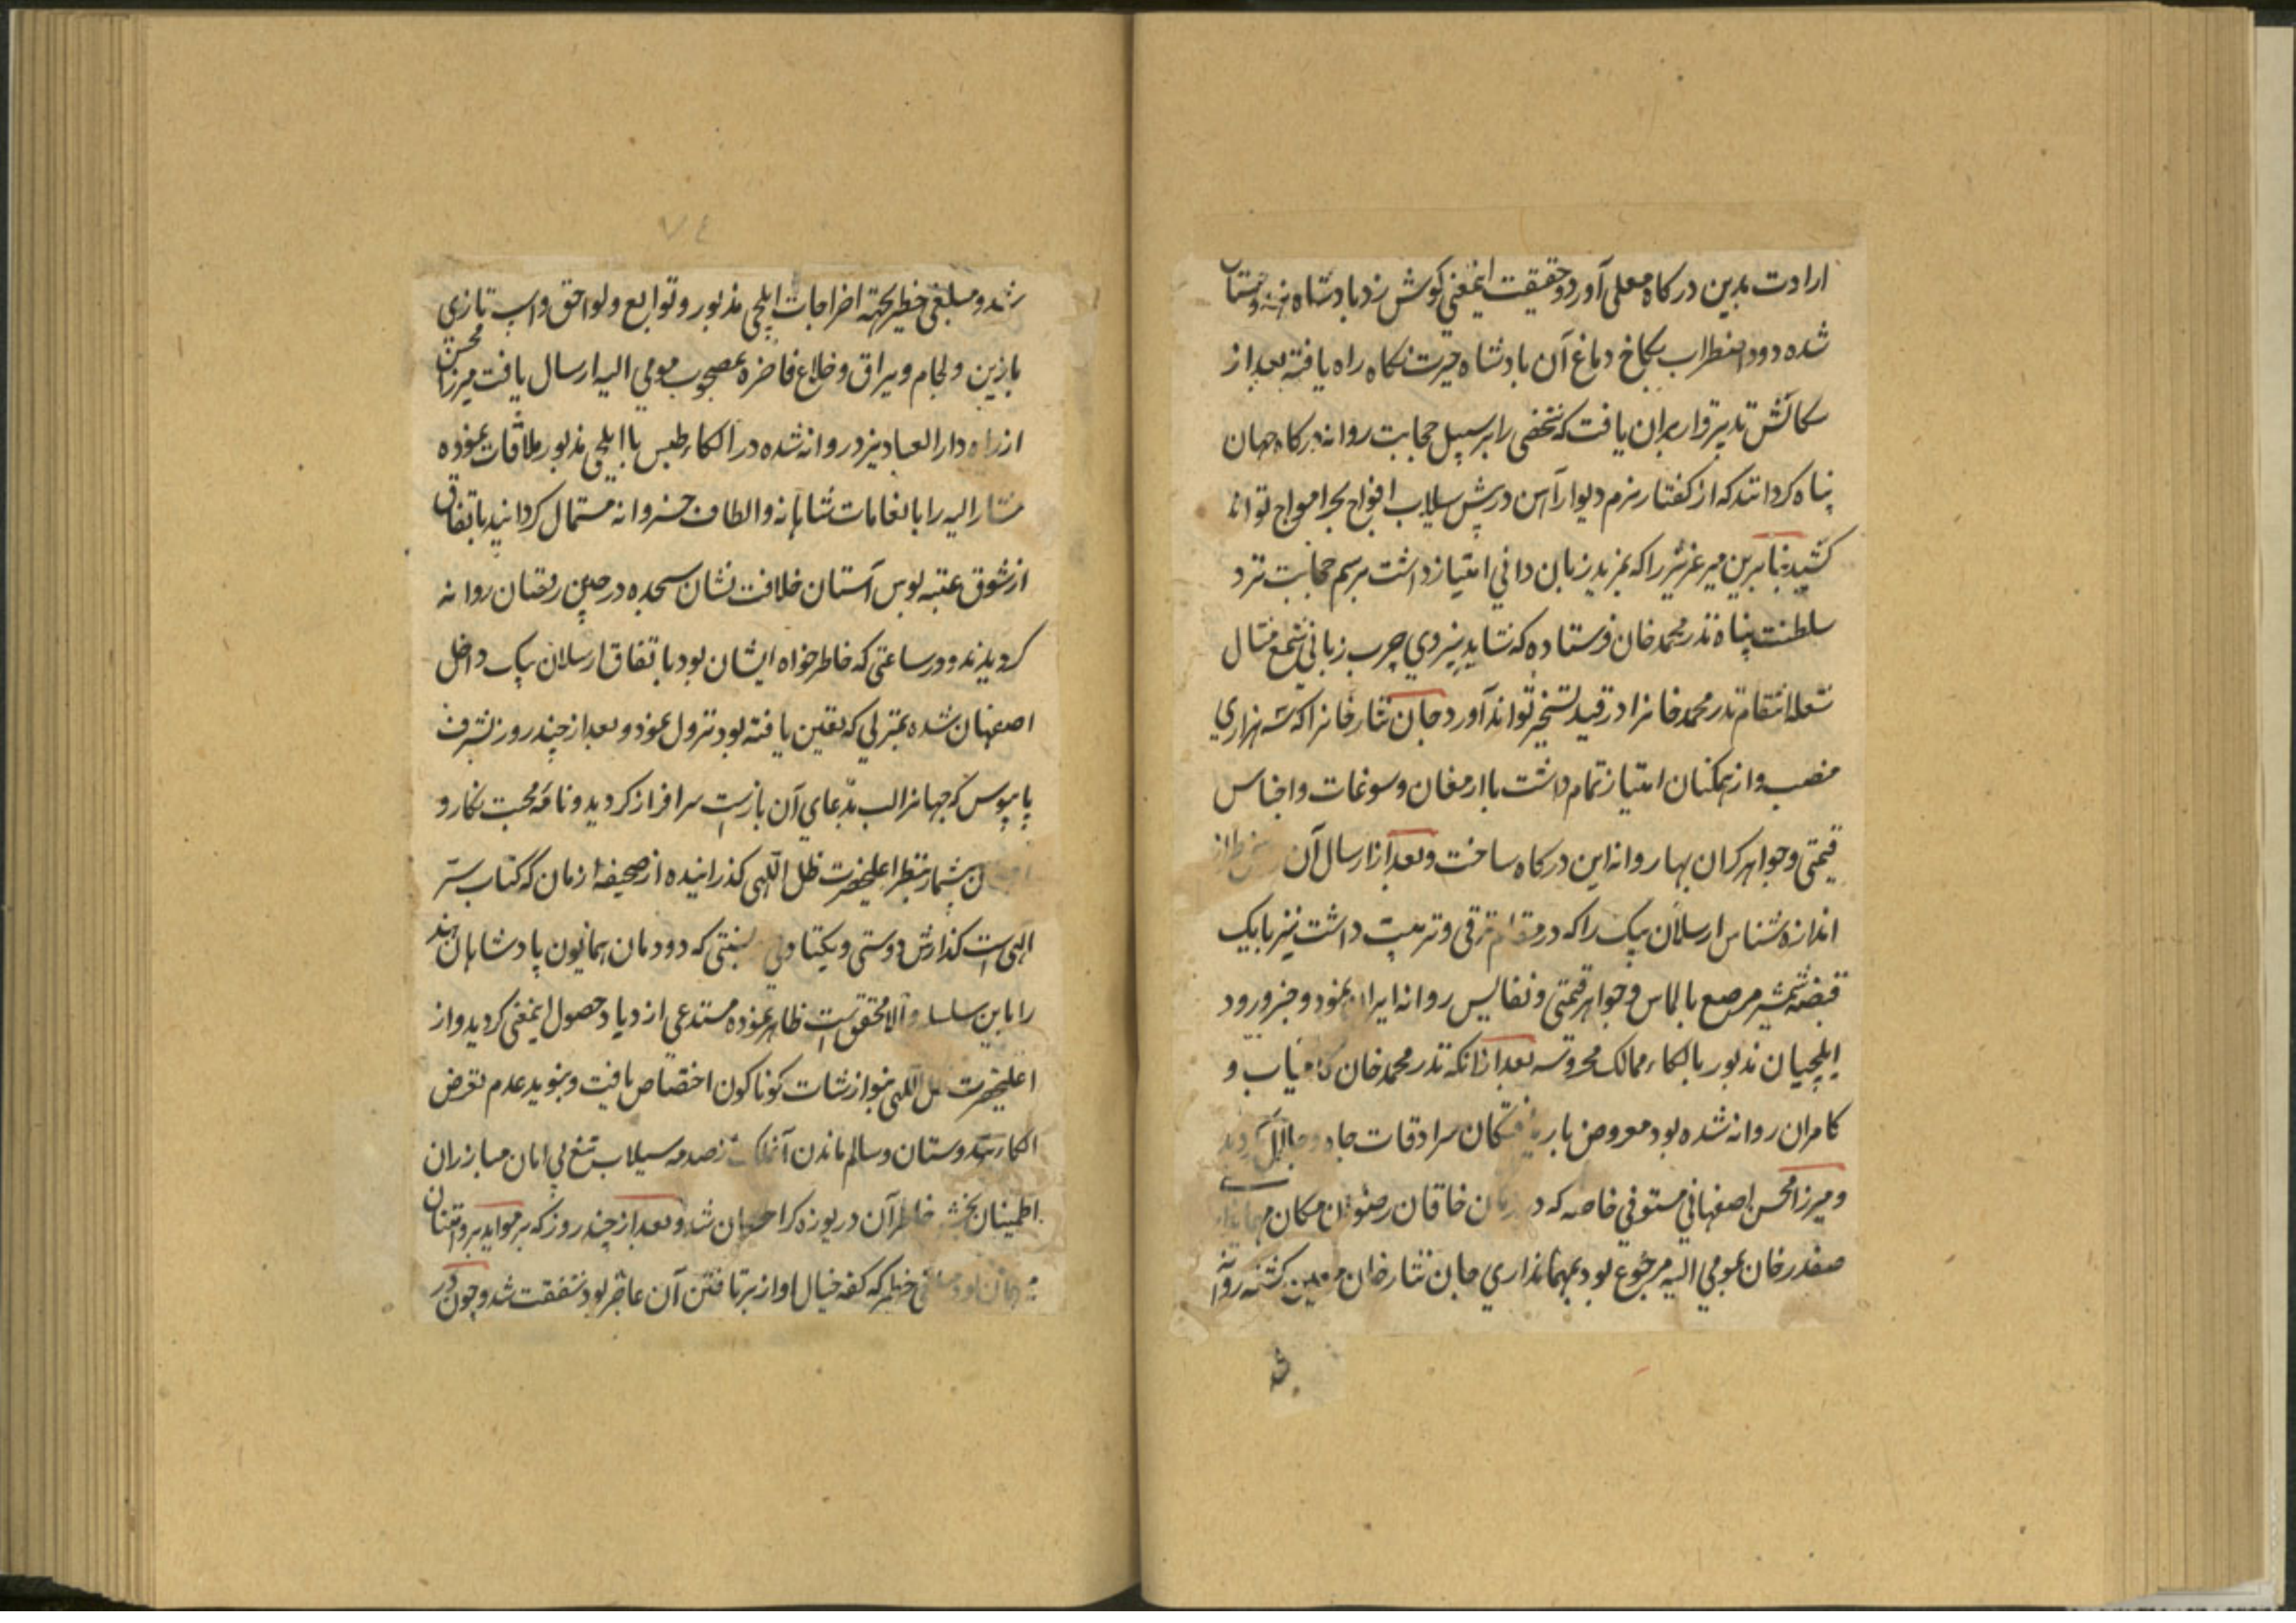 ارادت بدین درکاه معلی آورد و حقیقت اینمعنی کوش زد پادشاه هندوستان
شده دود اضطراب بکاخ دماغ آن پادشاه حیرت نکاه راه یافته بعد از
کنکاش تدبیر قرار بران یافت که شخصی را برسبیل حجابت روانه درکاه جهان
پناه کردانند که از کفتار نرم دیوار آهن در پیش سیلاب افواج بحر امواج تواند
کشید بنابرین میر عزیز را که بمزید زبان دانی امتیاز داشت برسم حجابت نزد
سلطنت پناه ندر محمد خان فرستاده که شاید بنیروی چرب زبانی شمع مثال
شعله انتقام ندر محمد خانرا در قید تسخیر تواند آورد و جان نثار خانرا که سه هزاری
منصب و از همکنان امتیاز تمام داشت با ارمغان و سوغات و اجناس
قیمتی و جواهر کران بها روانه این درکاه ساخت و بعد از ارسال آن
اندازه شناس ارسلان بیک را که در مقام ترقی و تربیت داشت نیز با یک
قبضه شمشیر مرصع بالماس و جواهر قیمتی و نفایس روانه ایران نمود و خبر ورود
ایلچیان مذبور بالکاء ممالک محروسه بعد از انکه ندر محمد خان کامیاب و
کامران روانه شده بود معروض بار یافتکان سرادقات جاه و جلال کردید
و میرزا محسن اصفهانی مستوفی خاصه که در زمان خاقان رضوان مکان مهمانداری
صفدر خان بمومی الیه مرجوع بود بمهمانداری جان نثار خان معین کشته روانه
شد
٧٤
شد و مبلغی خطیر بجهة اخراجات ایلچی مذبور و توابع و لواحق و اسب تازی
با زین و لجام و یراق و خلاع فاخره بمصحوب مومی الیه ارسال یافت میرزا محسن
از راه دار العباد یزد روانه شده در الکاء طبس با ایلچی مذبور ملاقات نموده
مشار الیه را بانعامات شاهانه و الطاف خسروانه مستمال کردانید باتفاق
از شوق عتبه بوس آستان خلافت نشان سجده در جبین رقصان روانه
کردیدند و در ساعتی که خاطر خواه ایشان بود باتفاق ارسلان بیک داخل
اصفهان شده بمنزلی که تعین یافته بود نزول نمود و بعد از چند روز بشرف
پابوس که جهانرا لب بدعای آن بازست سرافراز کردید و نامه محبت نکار و
بیشمار بنظر اعلیحضرت ظل اللهی کذرانیده از صحیفه ازمان که کتاب ستر
الهی است کذارش دوستی و یکتا دلی نسبتی که دودمان همایون پادشاهان هند
را باین سلسله والا محقق است ظاهر نموده مستدعی ازدیاد حصول اینمعنی کردید و از
اعلیحضرت ظل اللهی بنوازشات کوناکون اختصاص یافت و بنوید عدم تعرض
الکاء هندوستان و سالم ماندن آنملک از صدمه سیلاب تیغ بی امان مبارزان
اطمینان بخش خاطر آن دریوزه کر احسان شد و بعد از چند روز که بر مواید بر و امتنان
خطیر که کفه خیال او از برتافتن آن عاجز بود شفقت شد و چون در